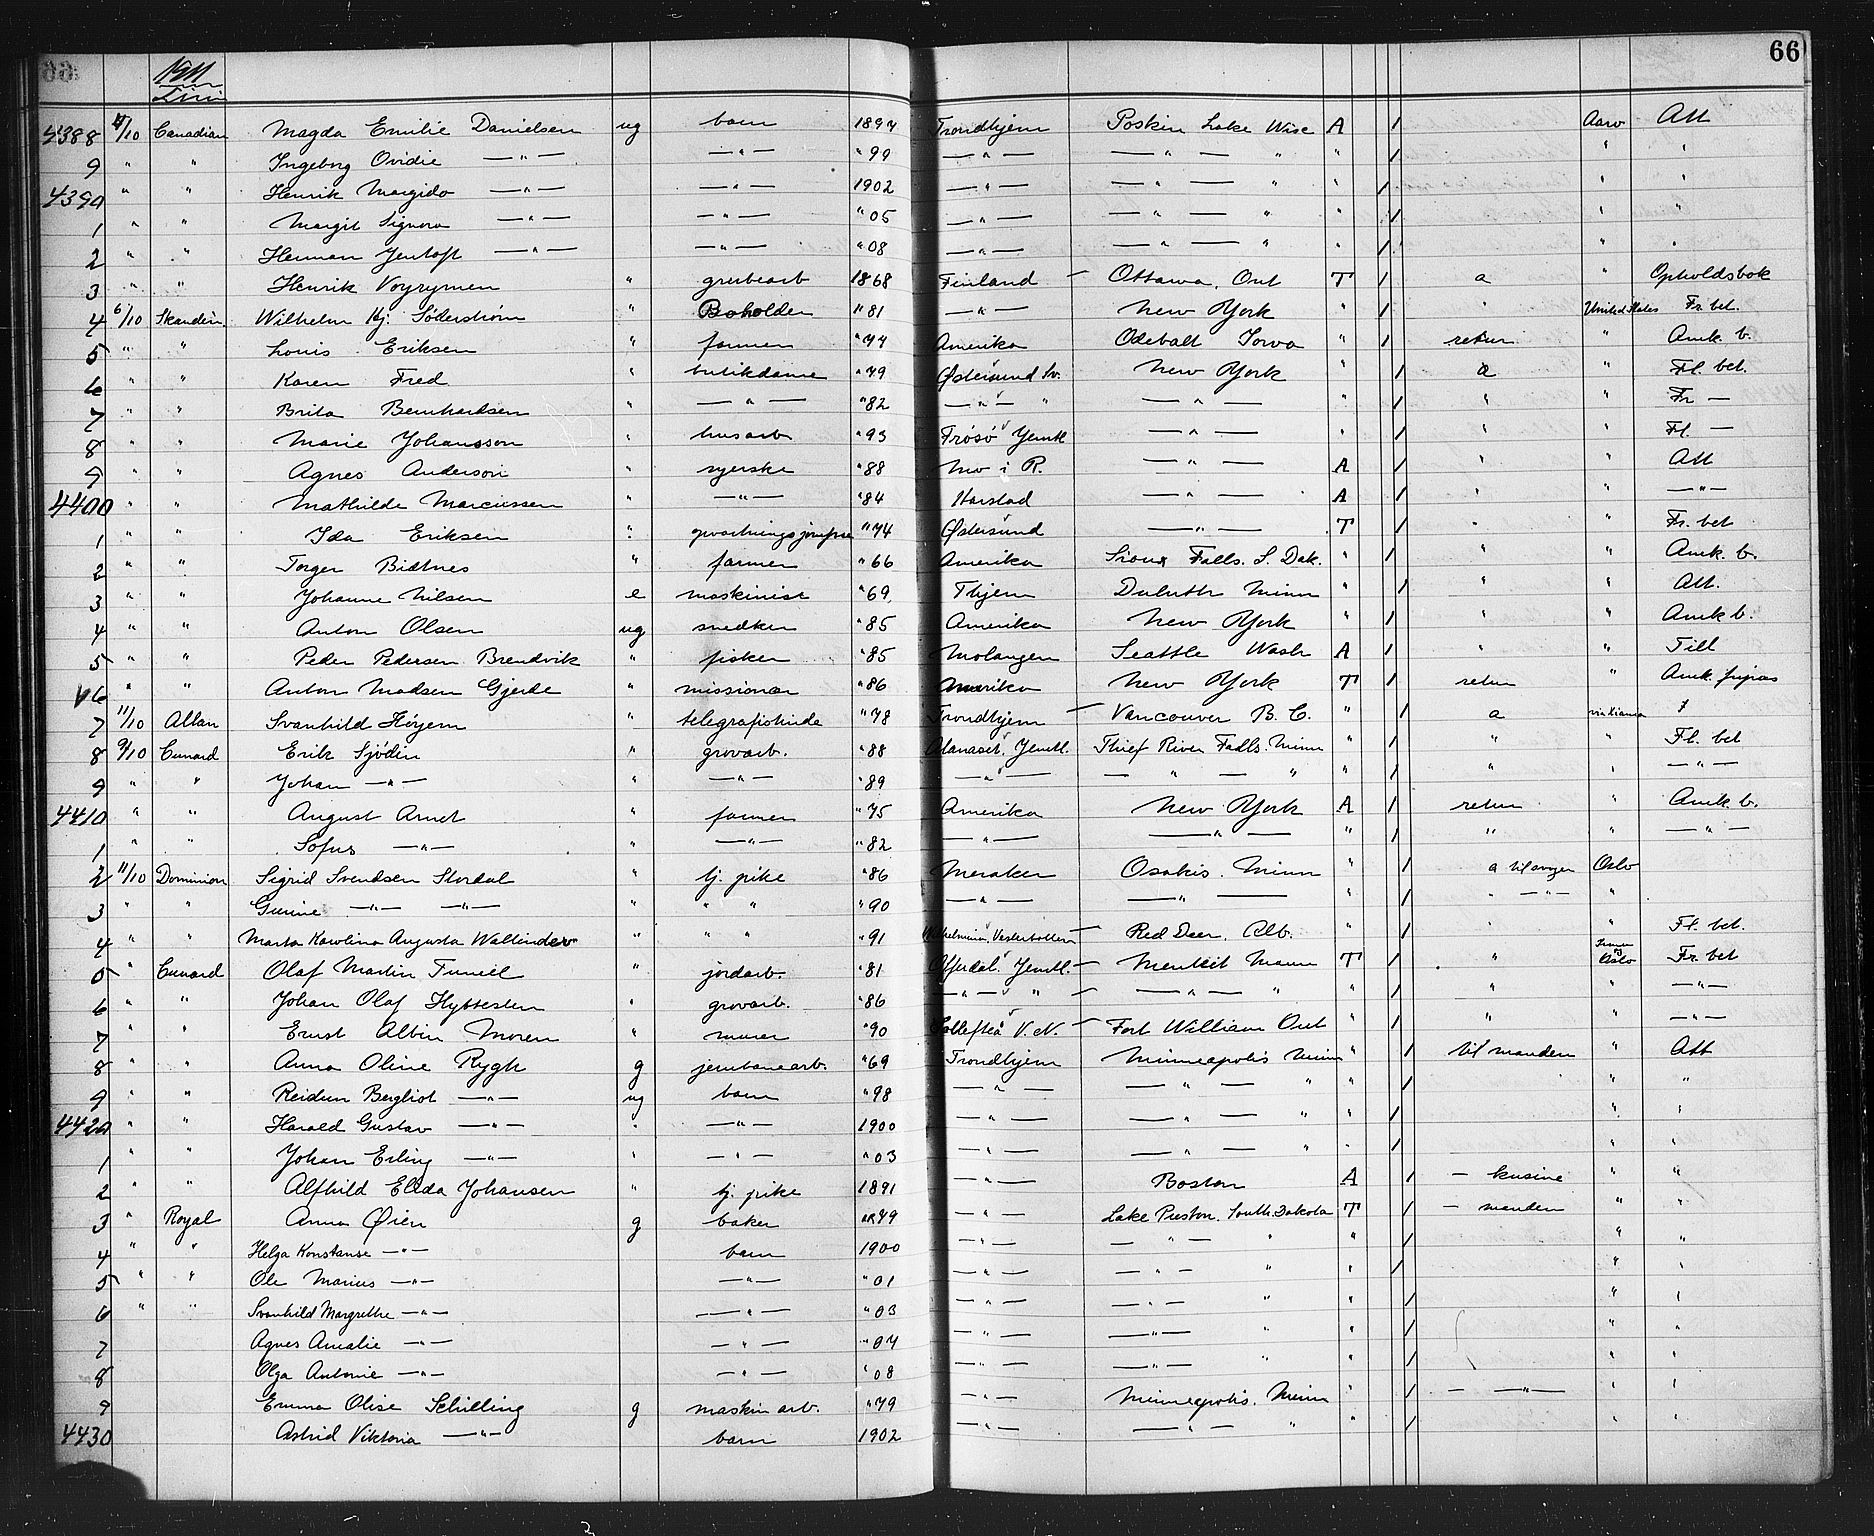 1911 66
Linie
4388 4/10 Canadian Magda Emilie Danielsen ug barn 1897 Trondhjem Poskin Lake Wisc A 1 Aaro Att
9 " " Ingeborg Ovidie —"— —"— "99 —"— —"— " " 1 " "
4390 " " Henrik Margido —"— —"— 1902 —"— —"— " " 1 " "
1 " " Margit Signora —"— —"— "05 —"— —"— " " 1 " "
2 " " Herman Jentoft —"— —"— "08 —"— —"— " " 1 " "
3 " " Henrik Voyrymen " grubearb 1868 Finland — Ottawa, Ont T 1 a " Opholdsbok
4 6/10 Skandin. Wilhelm Hj. Söderström " Boholder "81 —"— New York " 1 " United States Fr. bet.
5 " " Louis Eriksen " farmer "74 Amerika Odebolt Iowa " 1 retur " Amk. b.
6 " " Karen Fred " butikdame "79 Østersund Sv. New York " 1 a " Fl. bet.
7 " " Brita Bernhardsen " —"— "82 —"— " —"— " 1 " " Fr —
8 " " Marie Johansson " husarb "93 Frösö Jemtl —"— " 1 " " Fl. —
9 " " Agnes Anderson " syerske "88 Mo i R. —"— A 1 " " Att
4400 " " Mathilde Marcussen " —"— "84 Harstad —"— A 1 " " —"—
1 " " Ida Eriksen " opvartningsjomfru "74 Østersund —"— T 1 " " Fr. bet
2 " " Torger Bidtnes " farmer "66 Amerika Sioux Falls. S. Dak. " 1 " " Amk. b.
3 " " Johanne Nilsen e maskinist "69 Thjem Duluth Minn " 1 " " Att.
4 " " Anton Olsen ug snedker "85 Amerika New York " 1 " " Amk b.
5 " " Peder Pedersen Brendvik " fisker "85 Malangen Seattle Wash A 1 " " Till
6 " " Anton Madsen Gjerde " missionær "86 Amerika New York T 1 retur " Amk. fripas
7 11/10 Allan Svanhild Höyem " telegrafistinde "78 Trondhjem — Vancouver B. C. " 1 a via Kiania
8 9/10 Cunard Erik Sjödin " grovarb. "88 Alanäset, Jemtl. Thief River Falls. Minn " 1 " " Fl. bet
9 " " Johan —"— " —"— "89 —"— — " — " " 1 " " —"—
4410 " " August Arndt " farmer "75 Amerika New York A 1 retur " Amk. b.
1 " " Sofus —"— " —"— "82 —"— —"— " 1 " " —"—
2 11/10 Dominion Sigrid Svendsen Stordal " tj. pike "86 Meraker Osakis. Minn " 1 a Oslo
3 " " Gurine —"— —"— " " " "90 —"— —"— " 1 —"— "
4 " " Marta Karolina Augusta Wallinder " " " "91 Wilhelmina, Vesterbotten — Red Deer. Alb. " 1 " " Fl. bet.
5 " Cunard Olaf Martin Funeil " jordarb. "81 Offerdal. Jemtl. — Menkit Mann T 1 " Oslo Fr. bet
6 " " Johan Olaf Hyttesten " grovarb. "86 —"— " — —"— " " 1 " " —"—
7 " " Ernst Albin Moren " murer "90 Sollefteå V. N. — Fort William Ont " 1 " " —"—
8 " " Anna Oline Rygh g jernbanearb. "69 Trondhjem Minneapolis Minn " 1 til manden " Att
9 " " Reidun Bergliot —"— ug barn "98 —"— —"— " " 1 " "
4420 " " Harald Gustav —"— " —"— 1900 —"— —"— " " 1 " "
1 " " Johan Erling —"— " —"— "03 —"— —"— " " 1 " "
2 " " Alfhild Elida Johansen " tj. pike 1891 —"— Boston A 1 — kusine " "
3 " Royal Anna Øien g baker "79 —"— Lake Preston. South. Dakota T 1 — manden " "
4 " " Helga Konstanse —"— barn 1900 —"— —"— " " 1 " "
5 " " Ole Marius —"— —"— "01 —"— —"— " " 1 " "
6 " " Svanhild Margrethe —"— —"— "03 —"— —"— " " 1 " "
7 Agnes Amalie —"— —"— "04 —"— —"— " " 1 " "
8 Olga Antonie —"— —"— "08 —"— —"— " " 1 " "
9 Emma Olise Schilling g maskinarb. "79 —"— Minneapolis. Minn " 1 — —"— " "
4430 Astrid Viktoria —"— barn 1902 —"— —"— " " 1 " "